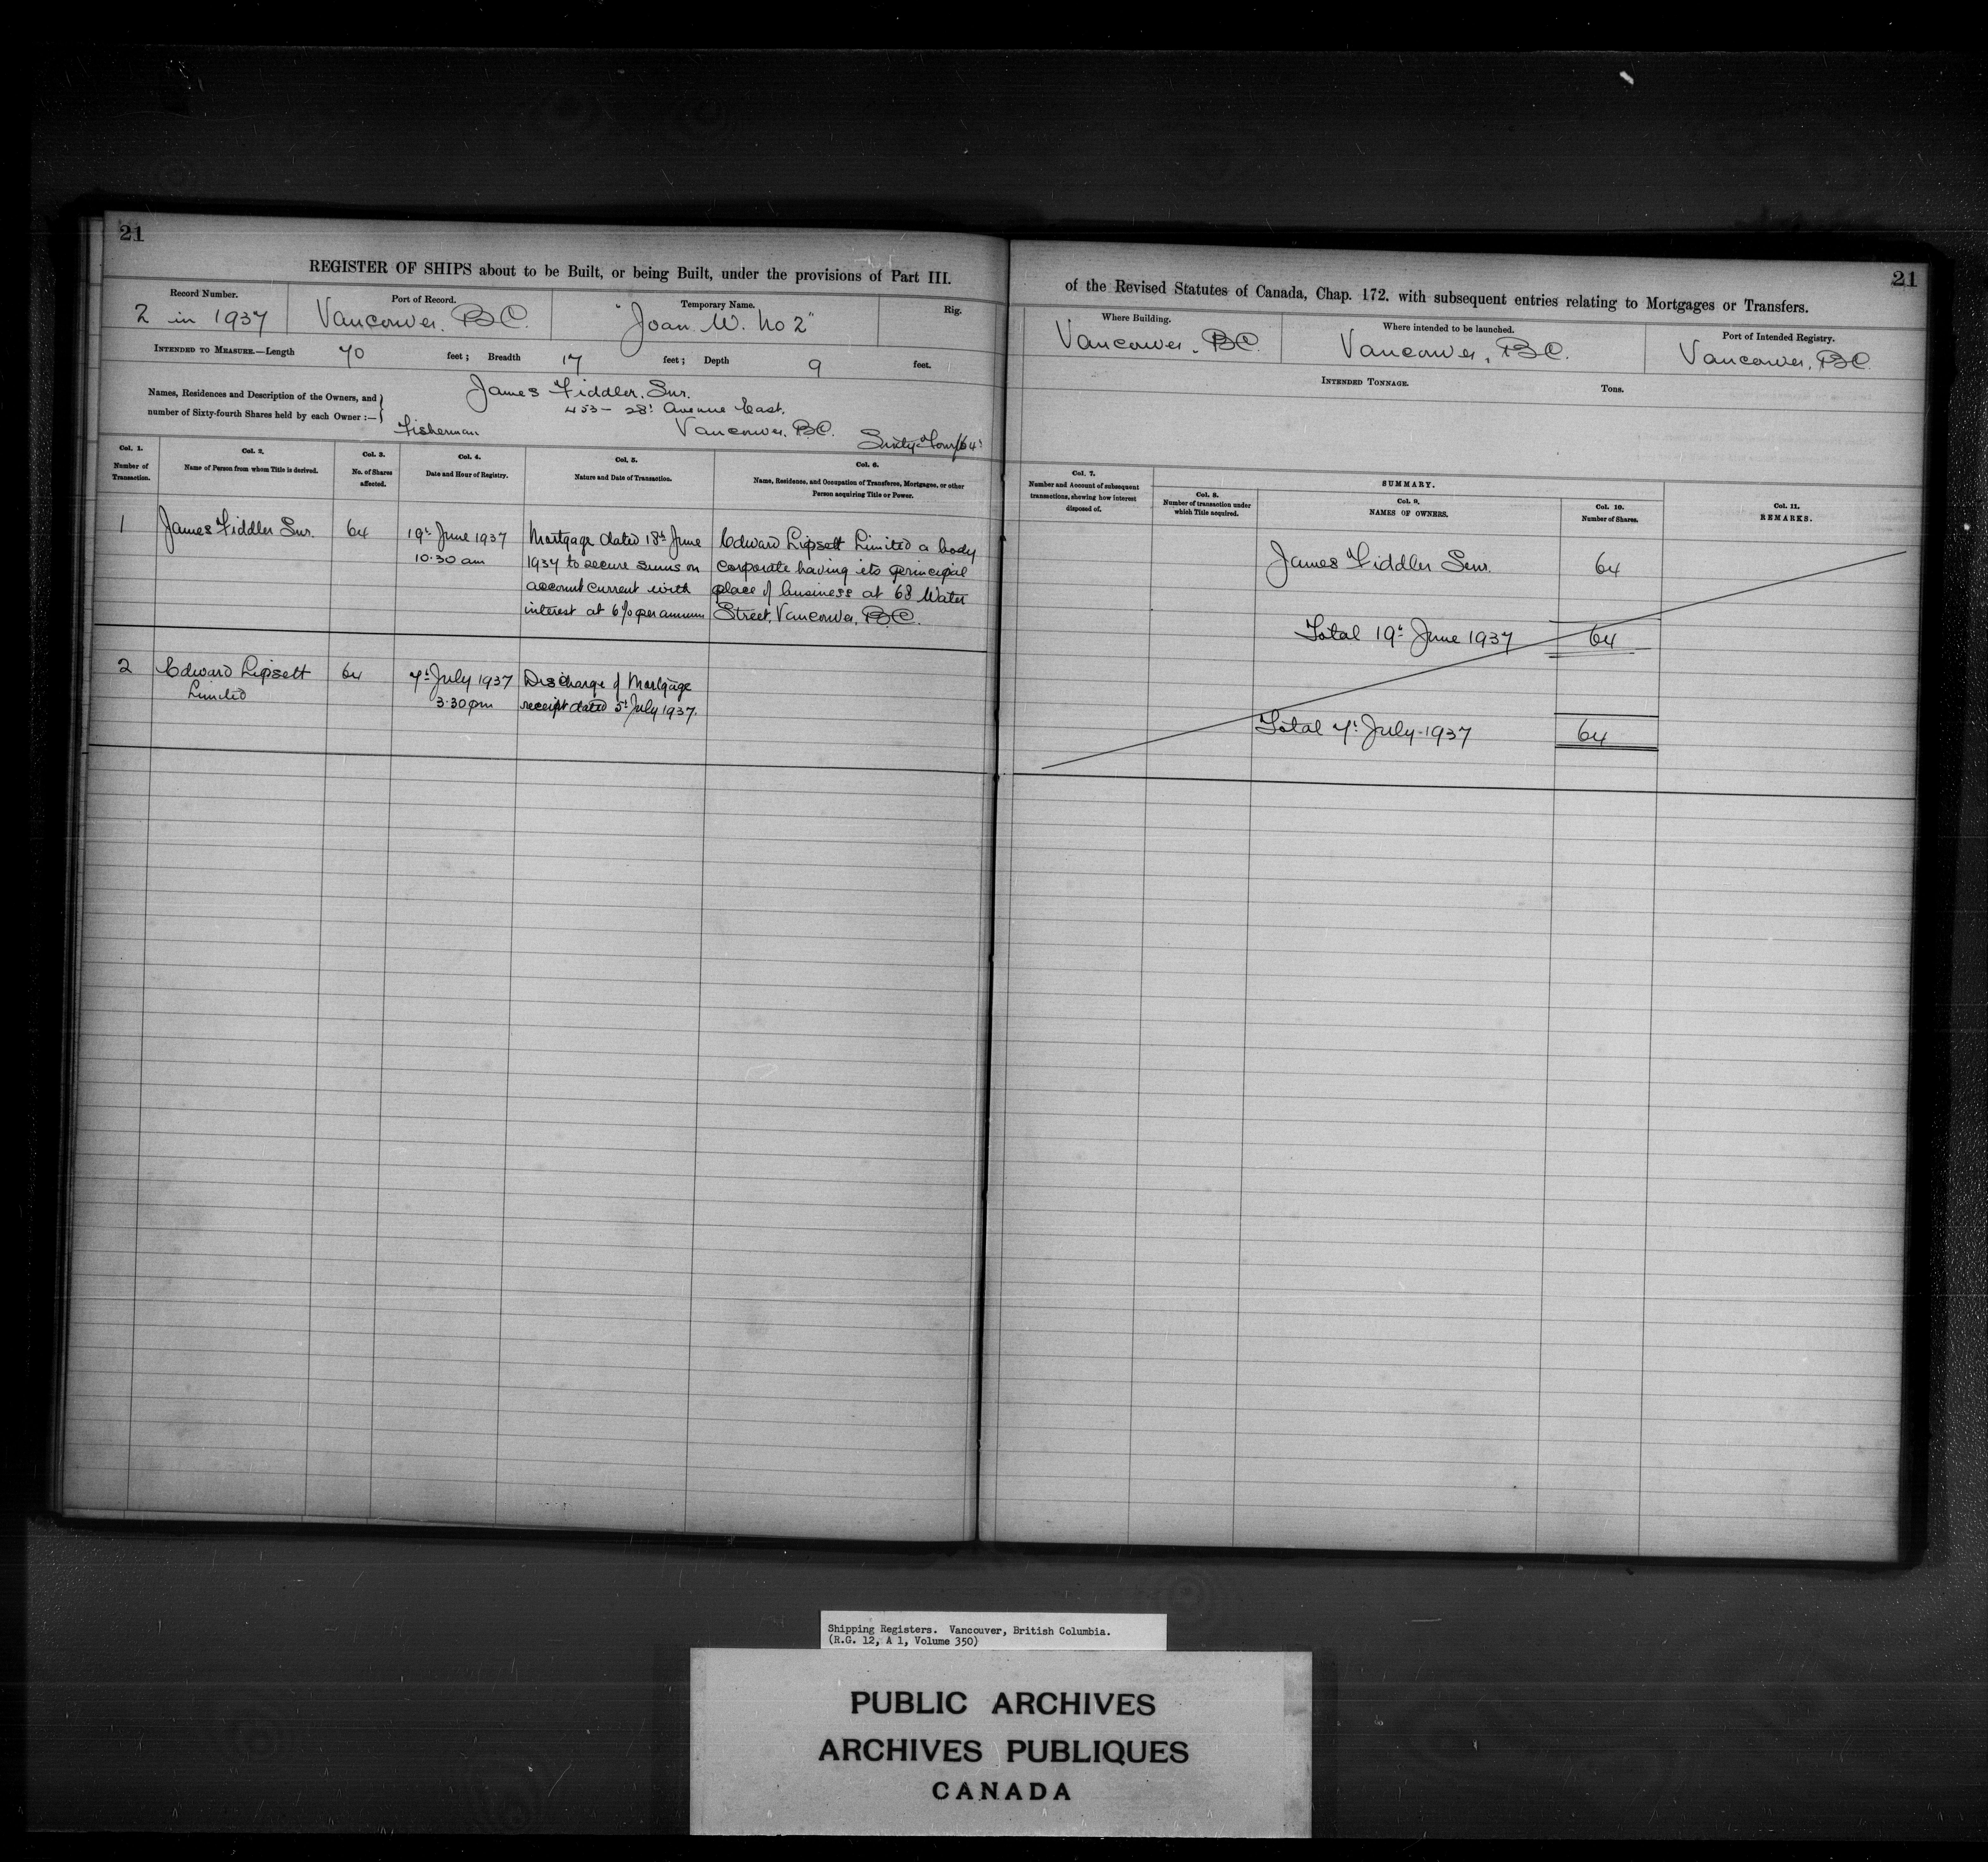 21
REGISTER OF SHIPS about to be Built, or being Built, under the provisions of Part III.
Record Number.
2 in 1937
Port of Record.
Vancouver, B.C.
Temporary Name.
"Joan W. No 2"
Rig.
INTENDED TO MEASURE.—Length 70 feet; Breadth 17 feet; Depth 9 feet.
Names, Residences and Description of the Owners, and
number of Sixty-fourth Shares held by each Owner:—
James Fiddler, Snr.
453 - 28th Avenue East.
Fisherman Vancouver, B.C. Sixty-Four/64s
Col. 1.
Number of
Transaction.
Col. 2.
Name of Person from whom Title is derived.
Col. 3.
No. of Shares
affected.
Col. 4.
Date and Hour of Registry.
Col. 5.
Nature and Date of Transaction.
Col. 6.
Name, Residence, and Occupation of Transferee, Mortgagee, or other
Person acquiring Title or Power.
1
James Fiddler Snr.
64
19th June 1937
10.30 am
Mortgage dated 18th June
1937 to secure sums on
account current with
interest at 6% per annum
Edward Lipsett Limited a body
corporate having its principal
place of business at 68 Water
Street, Vancouver, B.C.
2
Edward Lipsett
Limited
64
7th July 1937
3.30 pm
Discharge of Mortgage
receipt dated 5th July 1937.
21
of the Revised Statutes of Canada, Chap. 172. with subsequent entries relating to Mortgages or Transfers.
Where Building.
Vancouver, B.C.
Where intended to be launched.
Vancouver, B.C.
Port of Intended Registry.
Vancouver, B.C.
INTENDED TONNAGE.
Tons.
Col. 7.
Number and Account of subsequent
transactions, showing how interest
disposed of.
SUMMARY.
Col. 8.
Number of transaction under
which Title acquired.
Col. 9.
NAMES OF OWNERS.
Col. 10.
Number of Shares.
Col. 11.
REMARKS.
James Fiddler Senr. 64
Total 19th June 1937 64
Total 7th July 1937 64
Shipping Registers. Vancouver, British Columbia.
(R.G. 12, A 1, Volume 350)
PUBLIC ARCHIVES
ARCHIVES PUBLIQUES
CANADA